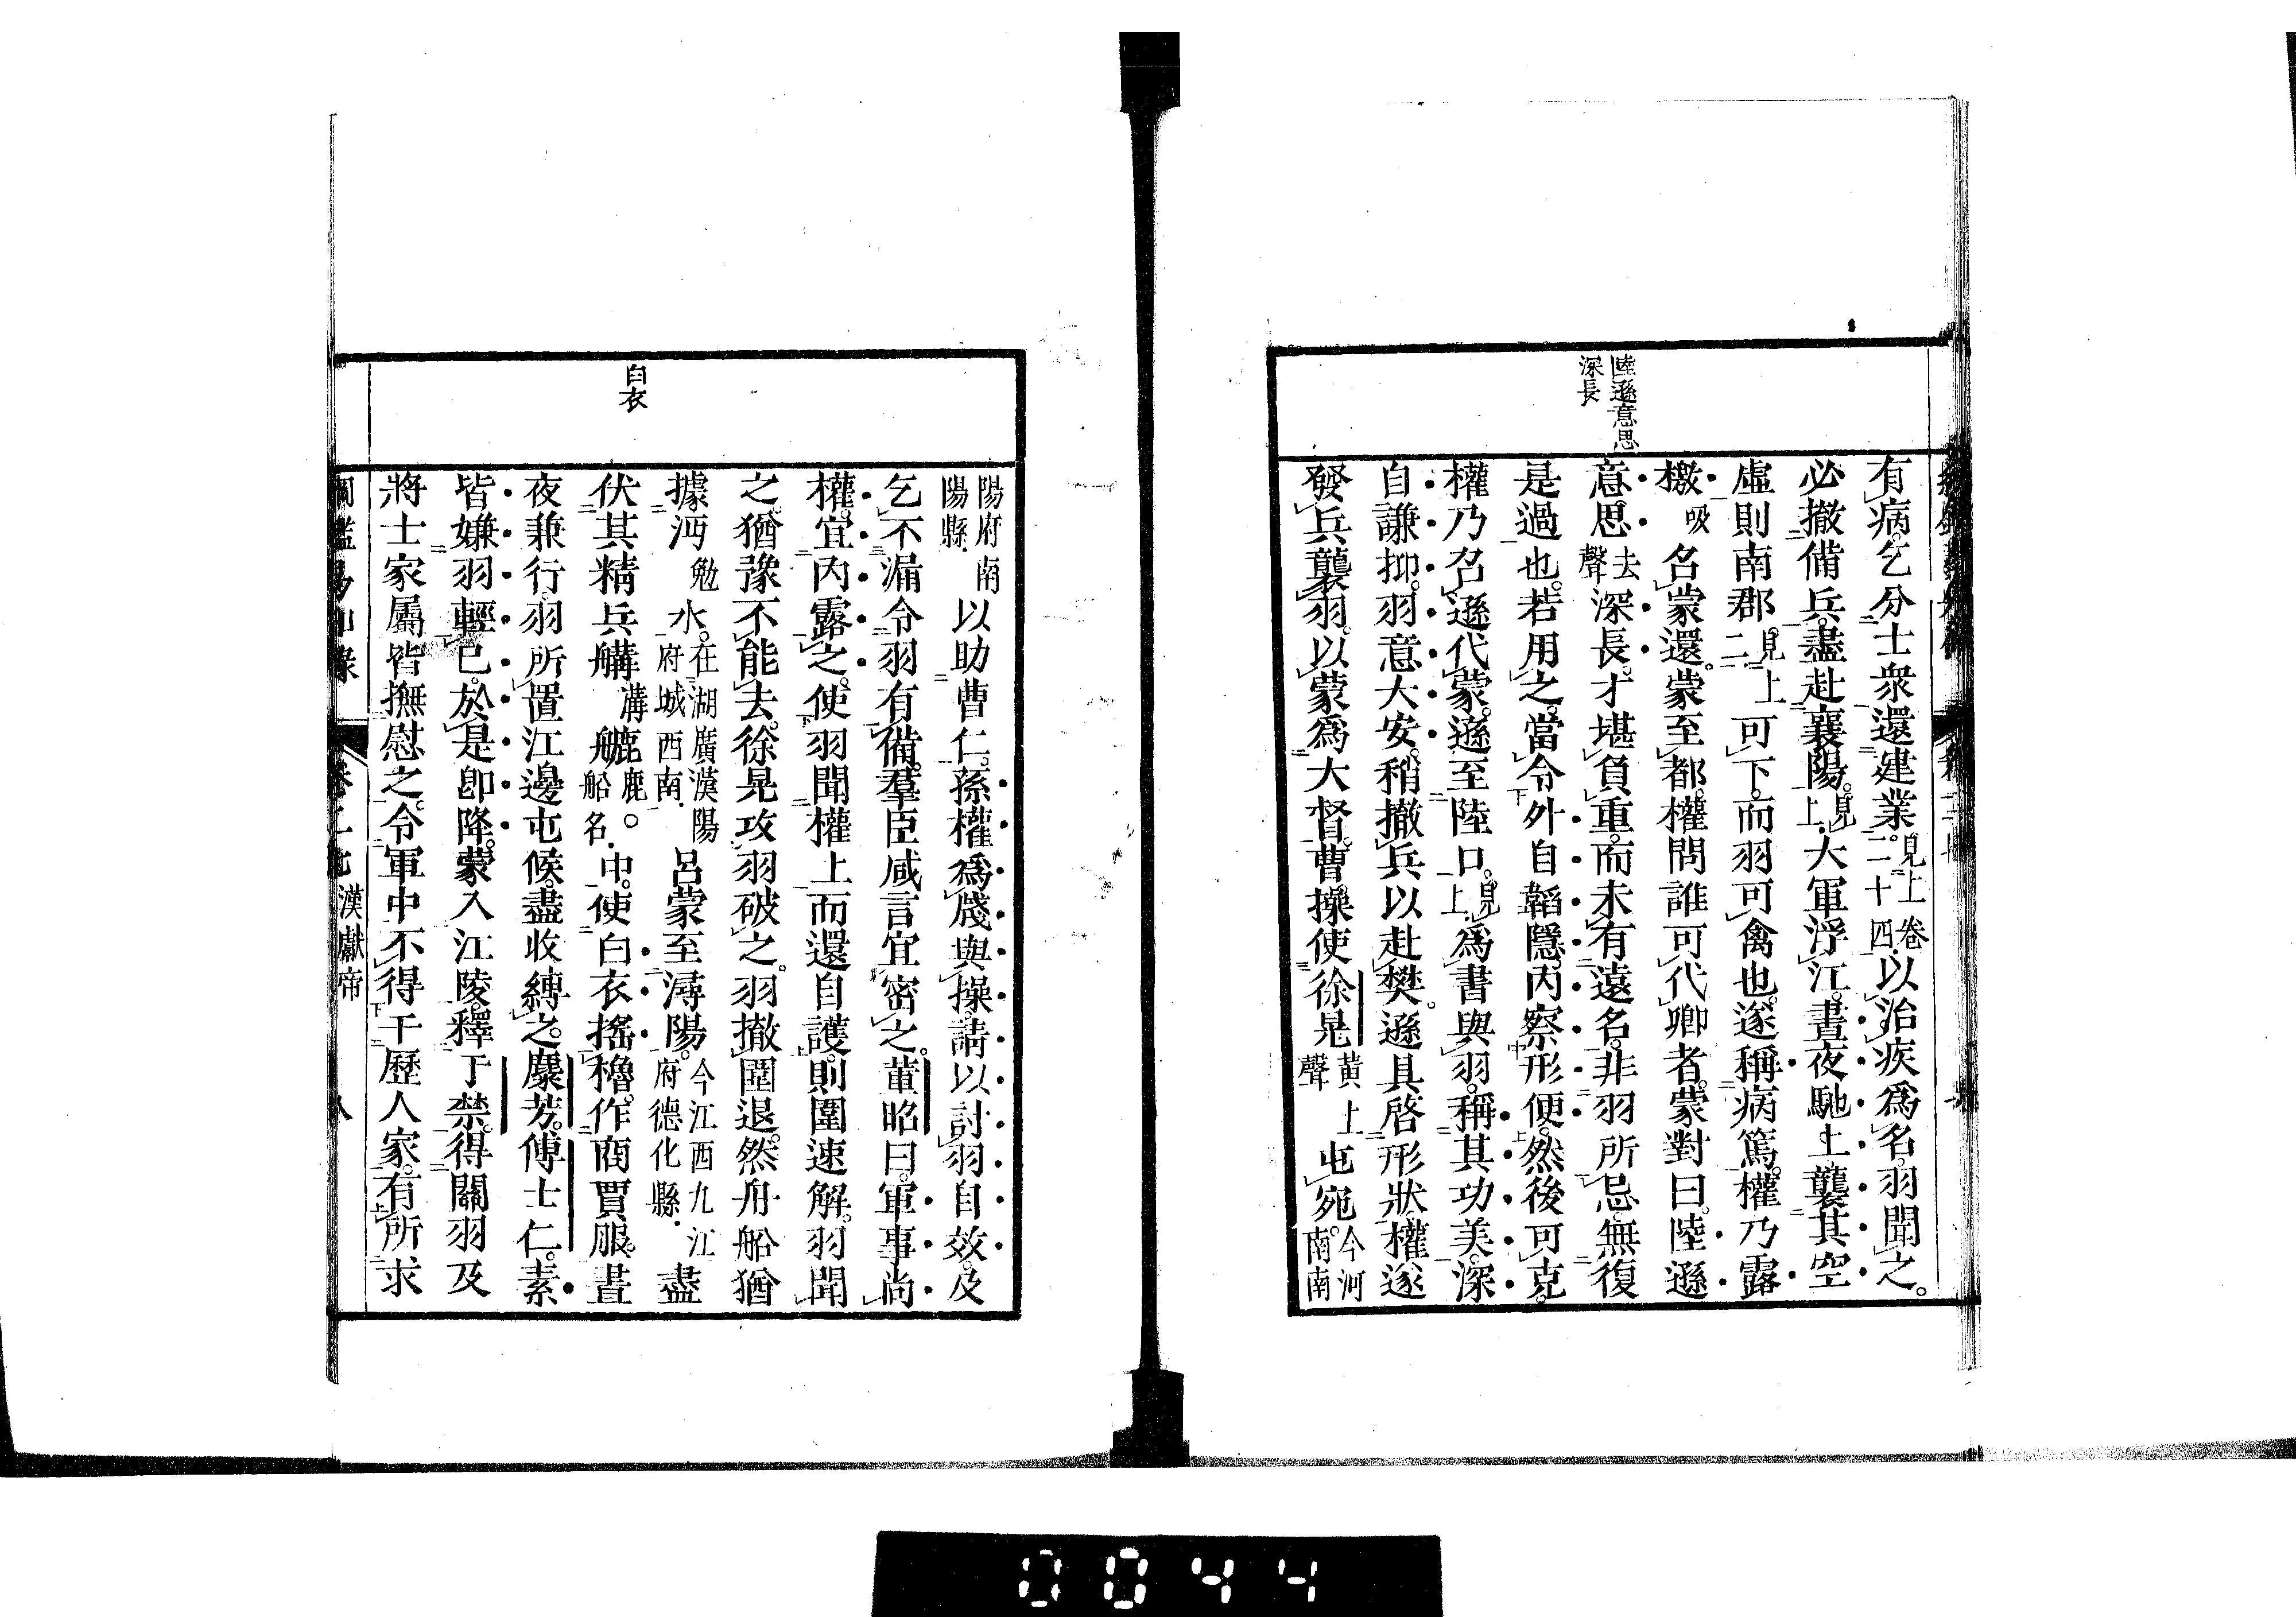 陸遜意思
深長
有病。乞分士衆還建業。見上卷二十四以治疾爲名。羽聞之。
必撤備兵。盡赴襄陽。見上大軍浮江。晝夜馳上襲其空
虛則南郡。見上二可下。而羽可禽也。遂稱病篤。權乃露
檄吸名蒙還。蒙至都。權問誰可代卿者。蒙對曰。陸遜
意思去聲深長。才堪負重。而未有遠名。非羽所忌。無復
是過也。若用之。當令外自韜隱。內察形便。然後可克。
權乃名遜代蒙。遜至陸口。見上爲書與羽。稱其功美。深
自謙抑。羽意大安。稍撤兵以赴樊。遜具啓形狀。權遂
發兵襲羽。以蒙爲大督。曹操使徐晃黃上聲屯宛。今河南南
陽府南陽縣以助曹仁。孫權爲牋與操。請以討羽自效。及
乞不漏令羽有備。羣臣咸言宜密之。董昭曰。軍事尚
權。宜內露之。使羽聞權上而還自護。則圍速解。羽聞
之猶豫不能去。徐晃攻羽破之。羽撤圍退。然舟船猶
據沔勉水。在湖廣漢陽府城西南呂蒙至潯陽。今江西九江府德化縣盡
伏其精兵䑦溝䑽鹿。船名中。使白衣搖櫓。作商賈服。晝
夜兼行。羽所置江邊屯候。盡收縛之。麋芳。傅士仁。素
皆嫌羽輕己。於是卽降。蒙入江陵。釋于禁。得關羽及
將士家屬皆撫慰之。令軍中不得干歷人家。有所求
白衣
綱鑑易知錄 卷二七 漢獻帝 八
0044